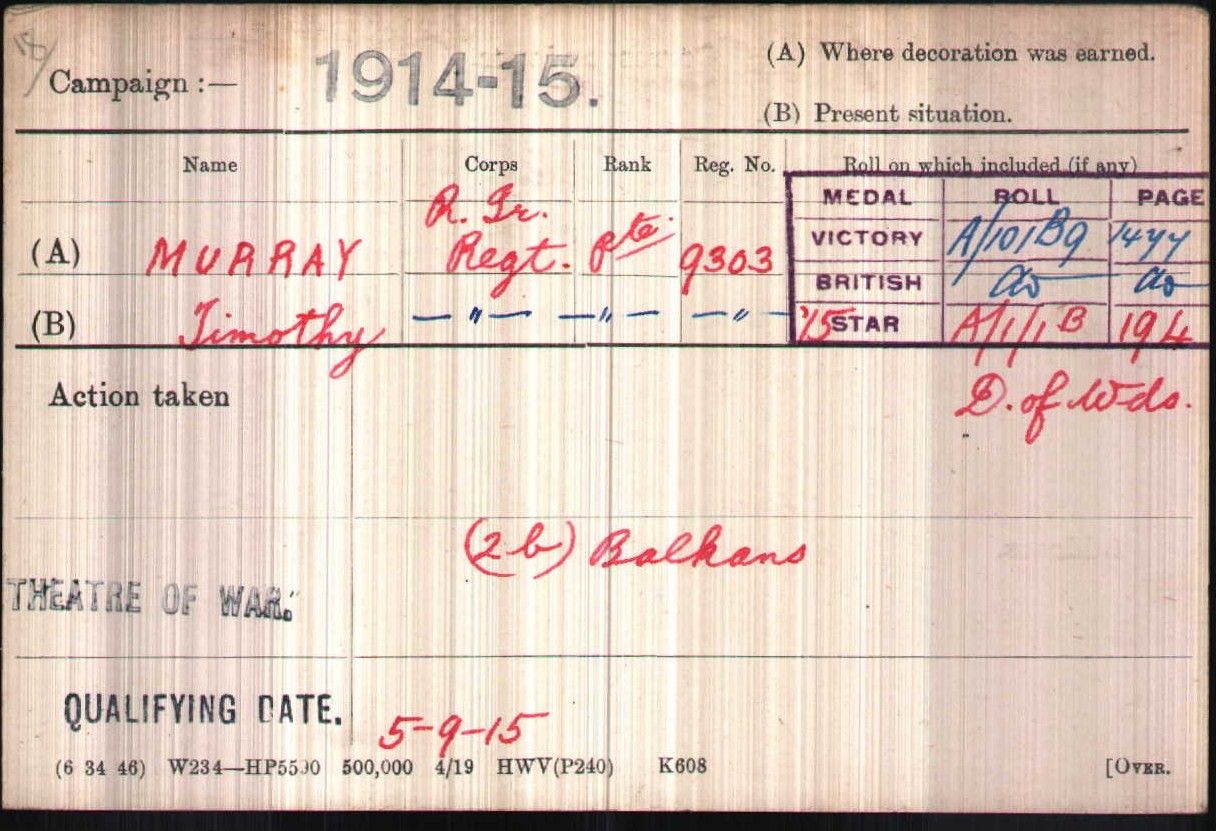 18/
(A) Where decoration was earned.
Campaign :— 1914-15.
(B) Present situation.
Name Corps Rank Reg. No. Roll on which included (if any)
R. Ir.
MEDAL ROLL PAGE
(A) MURRAY Regt. Pte 9303
VICTORY A/101B9 1477
BRITISH do do
(B) Timothy —"— —"— —"—
'15 STAR A/1/1B 194
Action taken
D. of Wds.
(2b) Balkans
THEATRE OF WAR.
QUALIFYING DATE. 5-9-15
(6 34 46) W234—HP5590 500,000 4/19 HWV(P240) K608 [OVER.